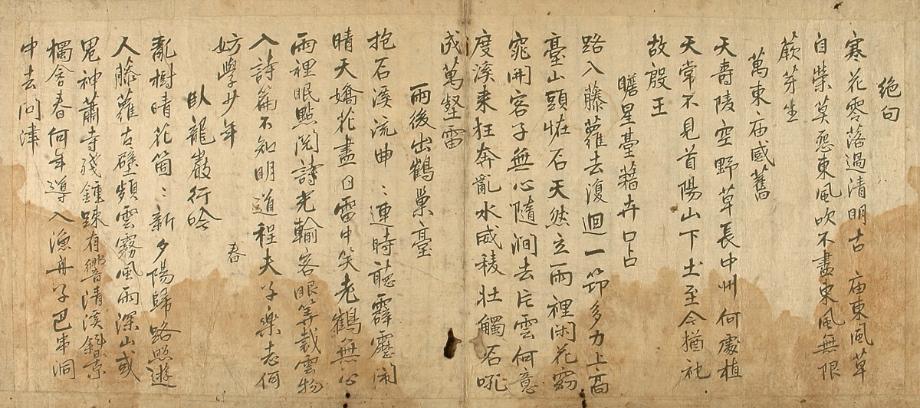 絶句
寒花零落過清明古庙東風草
自柴莫恶東風吹不盡東風無限
蕨芽生
萬東庙感舊
天壽陵空野草長中州何處植
天常不見首陽山下土至今猶祀
故殷王
瞻星臺藉卉口占
路入藤蘿去復迴一笻多力上高
臺山頭怪石天然立雨裡闲花窈
窕開客子無心隨澗去片雲何意
度溪来狂奔亂水咸稜壯觸石吼
成萬壑雷
雨後出鶴巢臺
抱石溪流曲〻連時聼霹靂闹
晴天嬌花盡日雷中笑老鶴無心
雨裡眠點閱詩老輸客眼等載雲物
入詩篇不知明道程夫子樂志何
妨學少年
卧龍巖行吟
春
亂樹晴花箇〻新夕陽歸路照遊
人藤蘿古壁頻雲霧風雨深山或
鬼神蕭寺残鍾踈有響清溪
獨舎春何年導入漁舟子巴串洞
中去问津